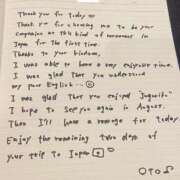 Thank you for today
Thank you for choosing me to be your
companion at this kind of ceremonies in
Japan for the first time.
Thanks to your kindness,
I was able to have a very enjoyable time.
I was glad that you understood
my poor English...
I was glad that you enjoyed
I hope to see you again in August.
Then I'll have a massage for today
Enjoy the remaining two days of
your trip to Japan